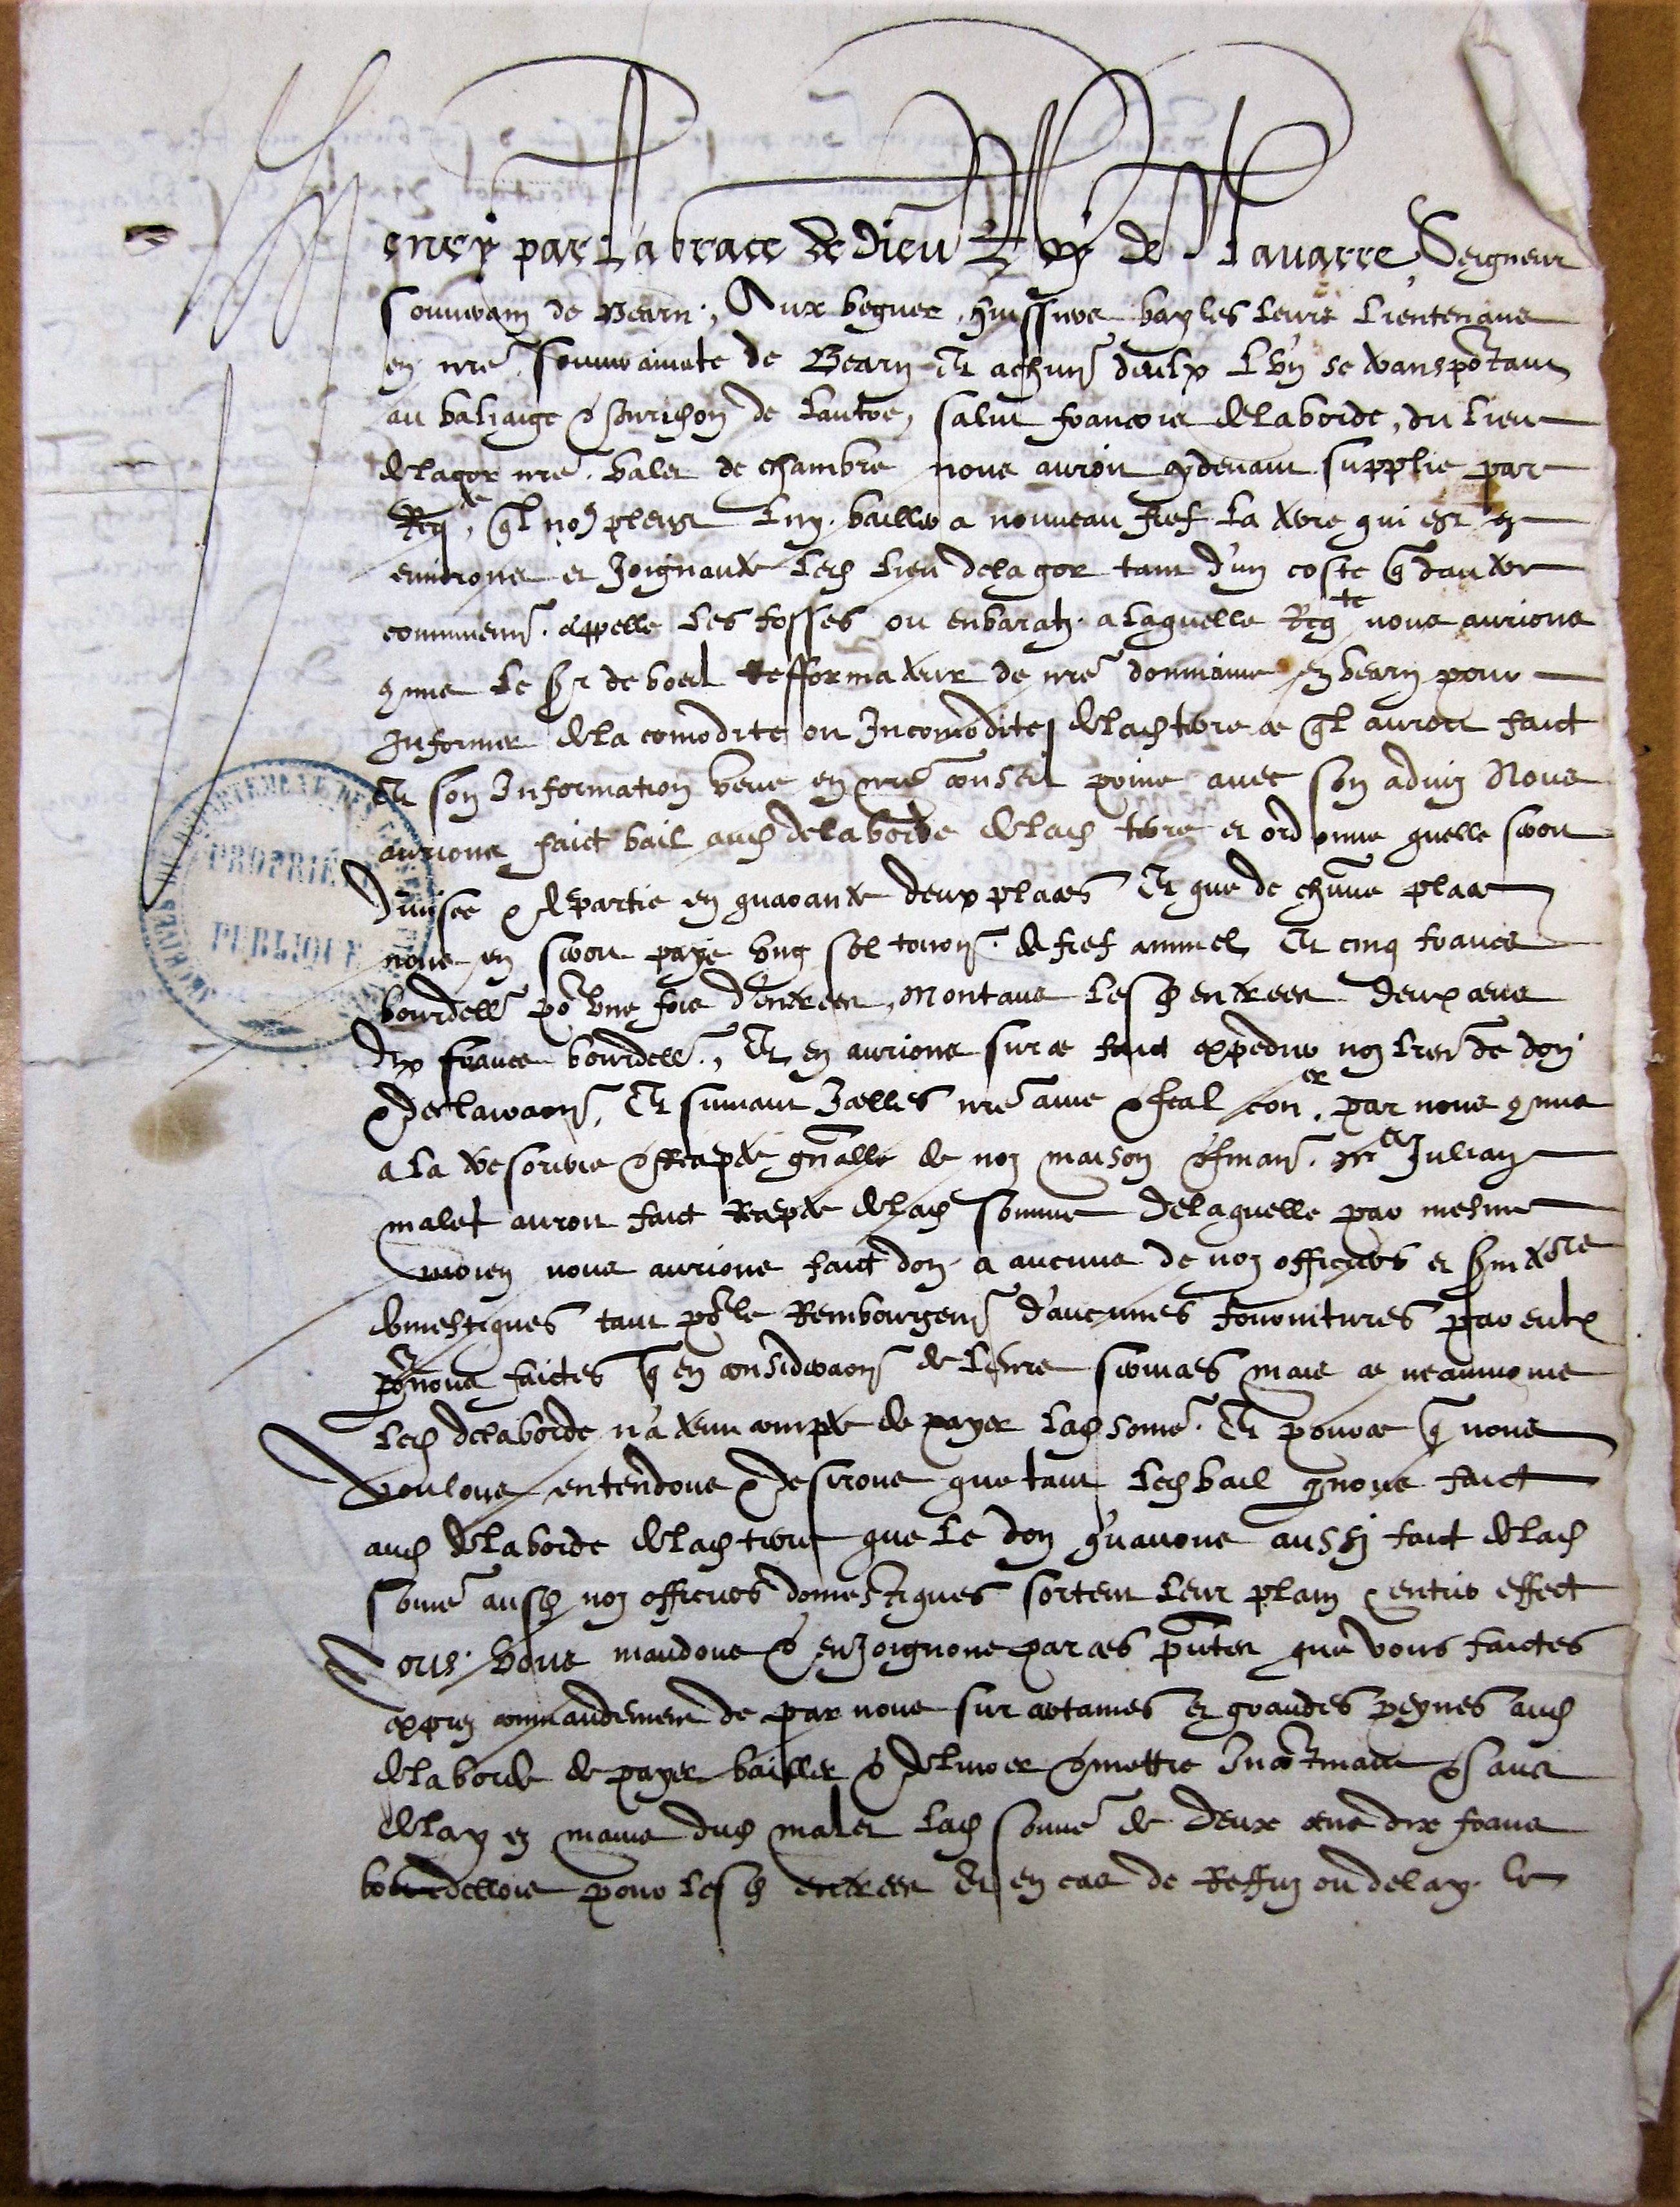 Henry par La grace de dieu Roy de Navarre, Seigneur
souverain de Bearn, Aux beguer, huissiers bayles leurs Lieutenans
en nre souverainete de Bearn Et a chun deulx L'un se transportant
au baliaige & Jurisdon de lautre, salut francois delaborde, du lieu
delagor nre valet de chambre nous auroit cydevant supplie par
Reqte, ql nos pleust luy bailler a nouveau fief La terre qui est ez
environs et Joignante led lieu delagor tant d'un coste q dautre
communemt appelle Les fosses ou enbaratz a laquelle Reqte nous aurions
commis le sr de boeil refformateur de nre dommaine en bearn pour
Informer de la comodite ou Incomodite de lad terre ce ql auroit faict
Et son Information veue en nre conseil prive avec son advis Nous
aurions faict bail aud delaborde de lad terre et ordonne quelle seroit
divisee & departie en quarante deux places Et que de chune place
nous en seroit paye ung sol tourn de fief annuel Et cinq francs
bourdell po une fois d'entrees, Montans lesd entrees deux cens
dix francs bourdell, Et en aurions surce faict expedier noz lres de don
& declaraon, Et suivant Icelles nre ame & feal coner par nous commis
a la tresorerie & Recepte gnalle de noz maison & finan. me Julian
malet auroit faict Recepte de lad somme delaquelle par mesme
moien nous aurions faict don a aucuns de noz officiers et
domestiques tant po le Remboursemt d'aucunes fournitures par eulx
po nous faictes q en consideraon de leurs services mais ce neanmoins
led delaborde n'a tenu compte de payer lad some. Et pource q nous
voulons entendons & desirons que tant led bail par nous faict
aud delaborde de lad terre que le don qu'avons aussi faict de lad
some ausd noz officiers domestiques sortent leur plain & entier effect
Nous vous mandons & enjoignons par ces pntes que vous faictes
exprez commandement de par nous sur certaines et grandes peynes aud
delaborde de payer bailler & delivrer & mettre Incontinant & sans
delay ez mains dud malet lad some de deux cens dix frans
bourdellois pour lesd entrees Et en cas de Reffuz ou delay le
PROPRIÉTÉ
PUBLIQUE